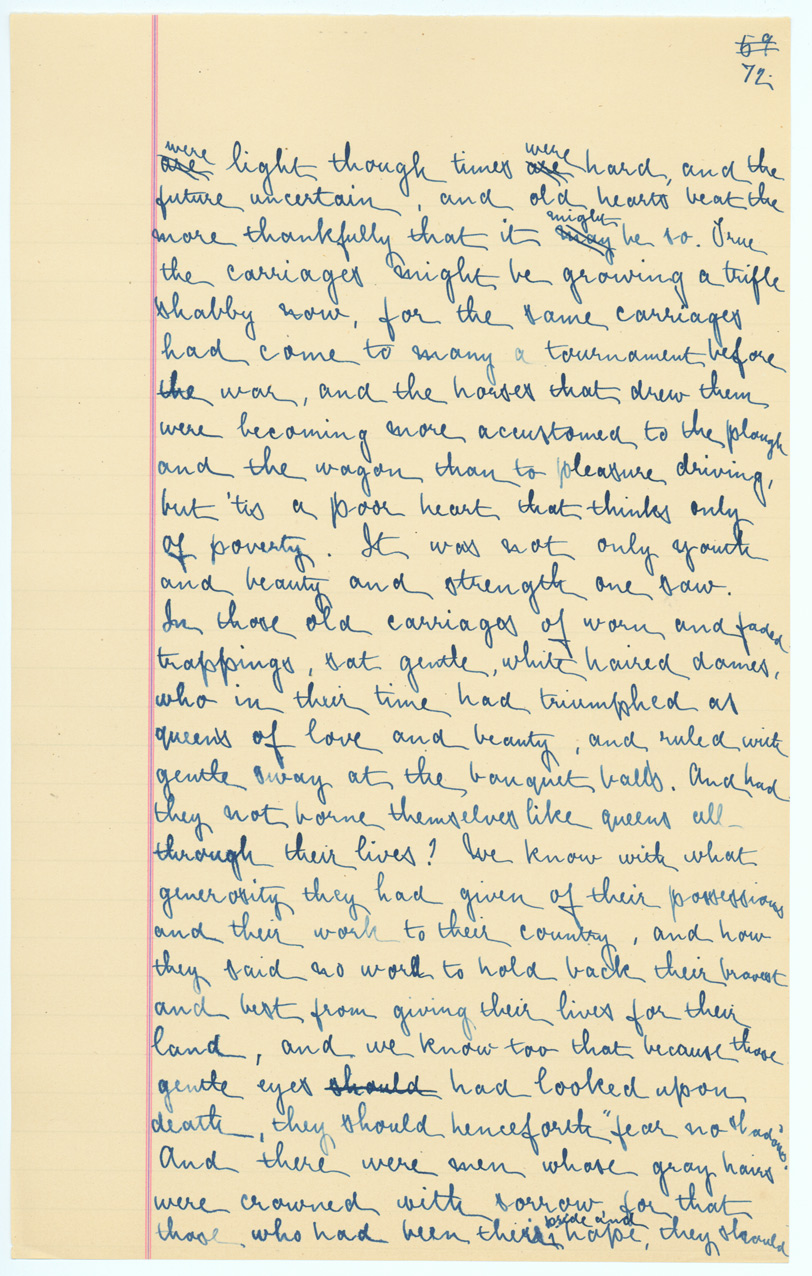 59
72.
were were
are light though times are hard, and the
future uncertain, and old hearts beat the
might
more thankfully that it may be so. True
the carriages might be growing a trifle
shabby now, for the same carriages
had come to many a tournament before
the war, and the horses that drew them
were becoming more accustomed to the plough
and the wagon than to pleasure driving,
but 'tis a poor heart that thinks only
of poverty. It was not only youth
and beauty and strength one saw.
In those old carriages of worn and faded
trappings, sat gentle, white haired dames,
who in their time had triumphed as
queens of love and beauty, and ruled with
gentle sway at the banquet balls. And had
they not borne themselves like queens all
through their lives? We know with what
generosity they had given of their possessions
and their work to their country, and how
they said no word to hold back their bravest
and best from giving their lives for their
land, and we know too that because those
gentle eyes should had looked upon
death, they should henceforth "fear no shadows."
And there were men whose gray hairs
were crowned with sorrow, for that
pride and
those who had been their hope, they should